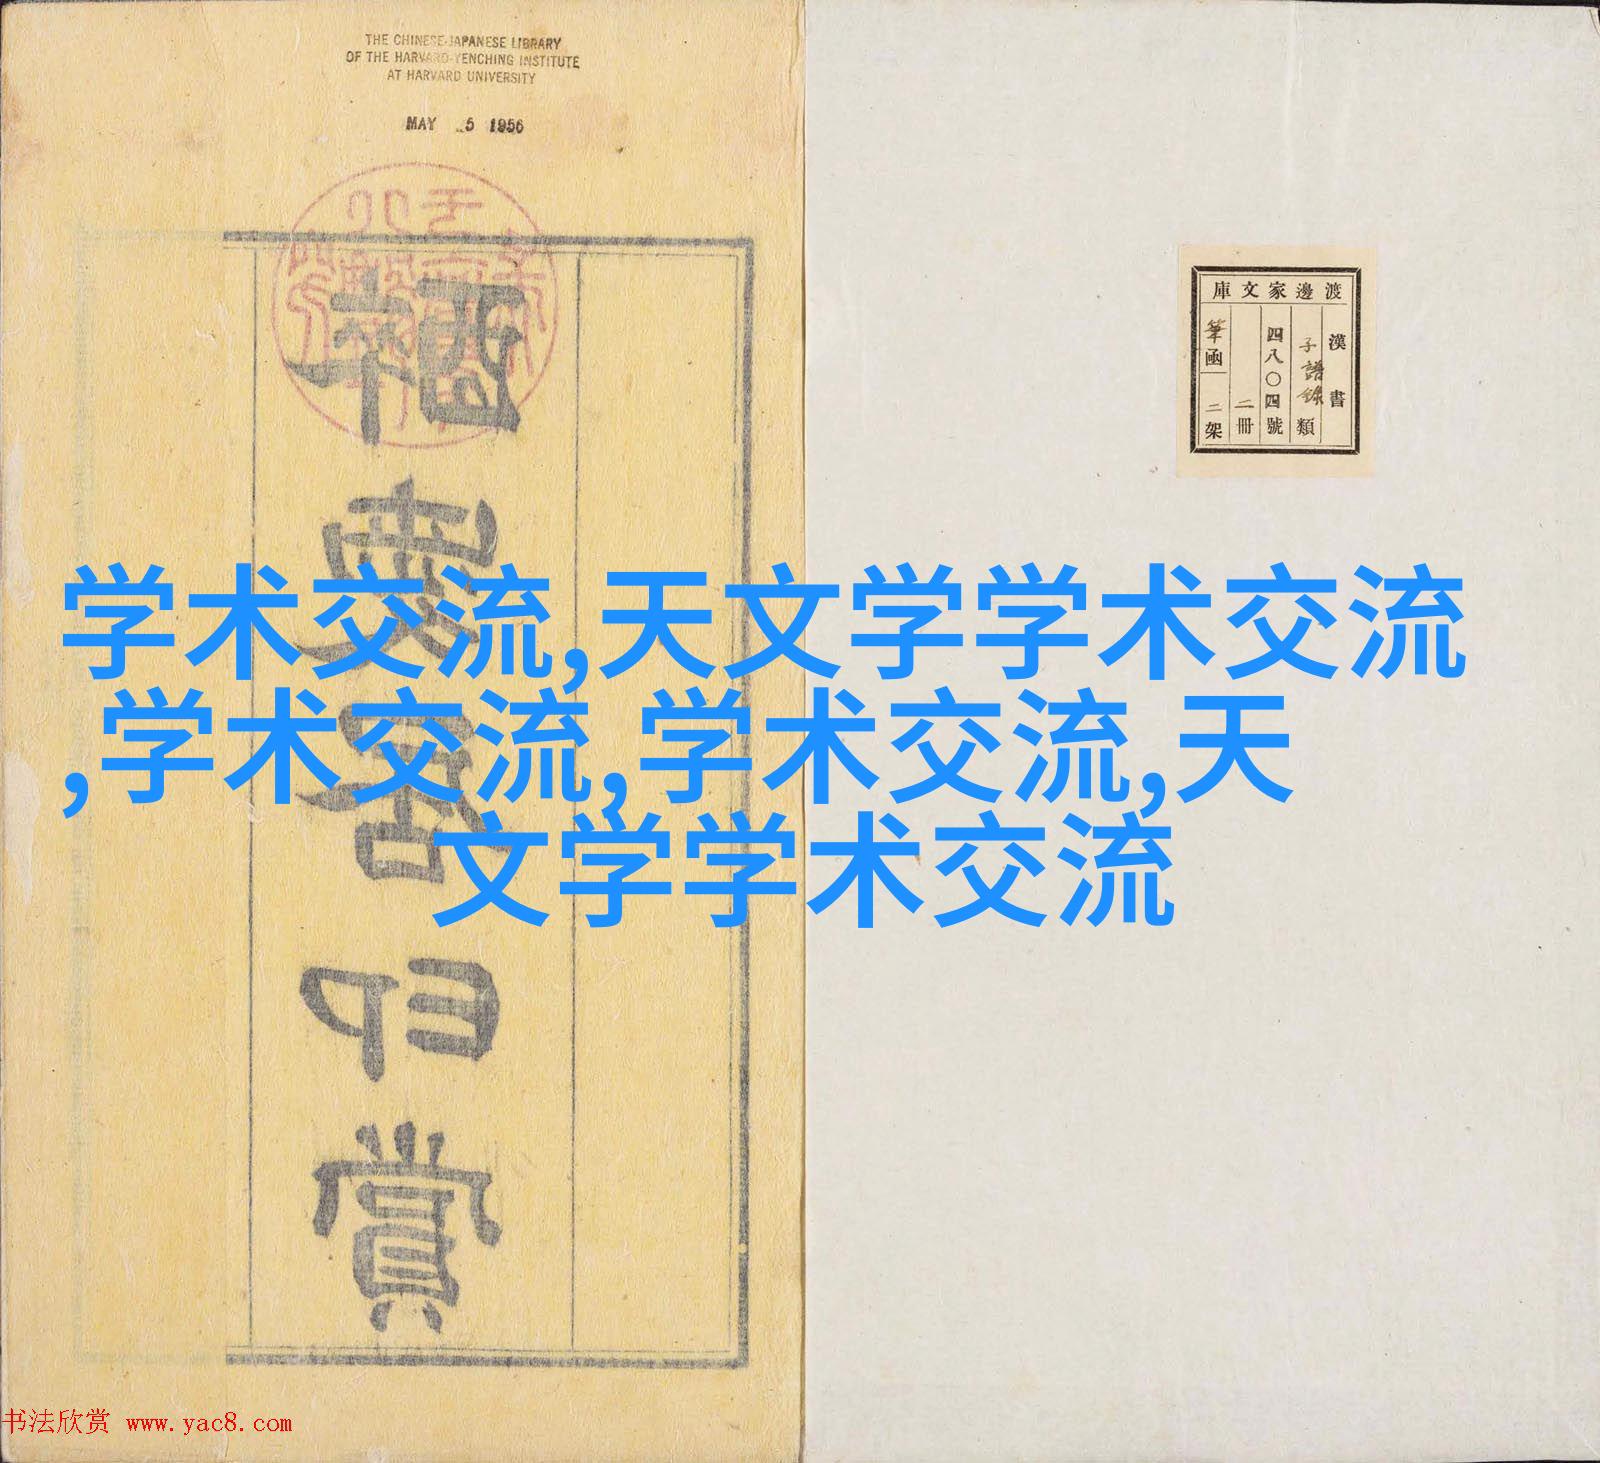 THE CHINESE-JAPANESE LIBRARY
OF THE HARVARD-YENCHING INSTITUTE
AT HARVARD UNIVERSITY
MAY 5 1956
渡邊家文庫
漢書
子語錄類
四八〇四號
二冊
筆函二架
学术交流,天文学学术交流
,学术交流,学术交流,天
文学学术交流
书法欣赏 www.yac8.com